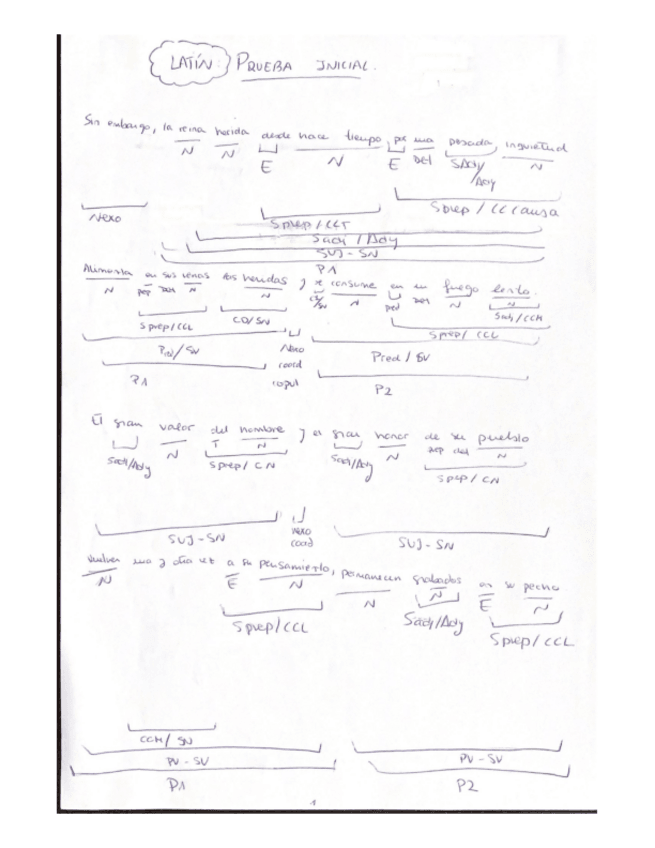 LATÍN: PRUEBA INICIAL.
Sin embargo, la reina herida desde hace tiempo por una pesada inquietud
N N E N E Det SAdj/Adj N
Nexo Sprep/CCT Sprep/CC Causa
Sadj/Ady
SUJ-SN
P1
Alimenta en sus venas las heridas y se consume en un fuego lento.
N prep Det N N N prep Det N N
Sprep/CCL CD/SN Sprep/CCL Sadj/CCM
Pred/SV Nexo coord copul Pred/SV
P1 P2
El gran valor del hombre y el gran honor de su pueblo
Sadj/Ady N T N Sadj/Ady N prep det N
Sprep/CN Sprep/CN
SUJ-SN Nexo coord SUJ-SN
Vuelven una y otra vez a su pensamiento, permanecen grabados en su pecho
N E N N N E N
Sprep/CCL Sadj/Ady Sprep/CCL
CCM/SN
PV-SV PV-SV
P1 P2
1